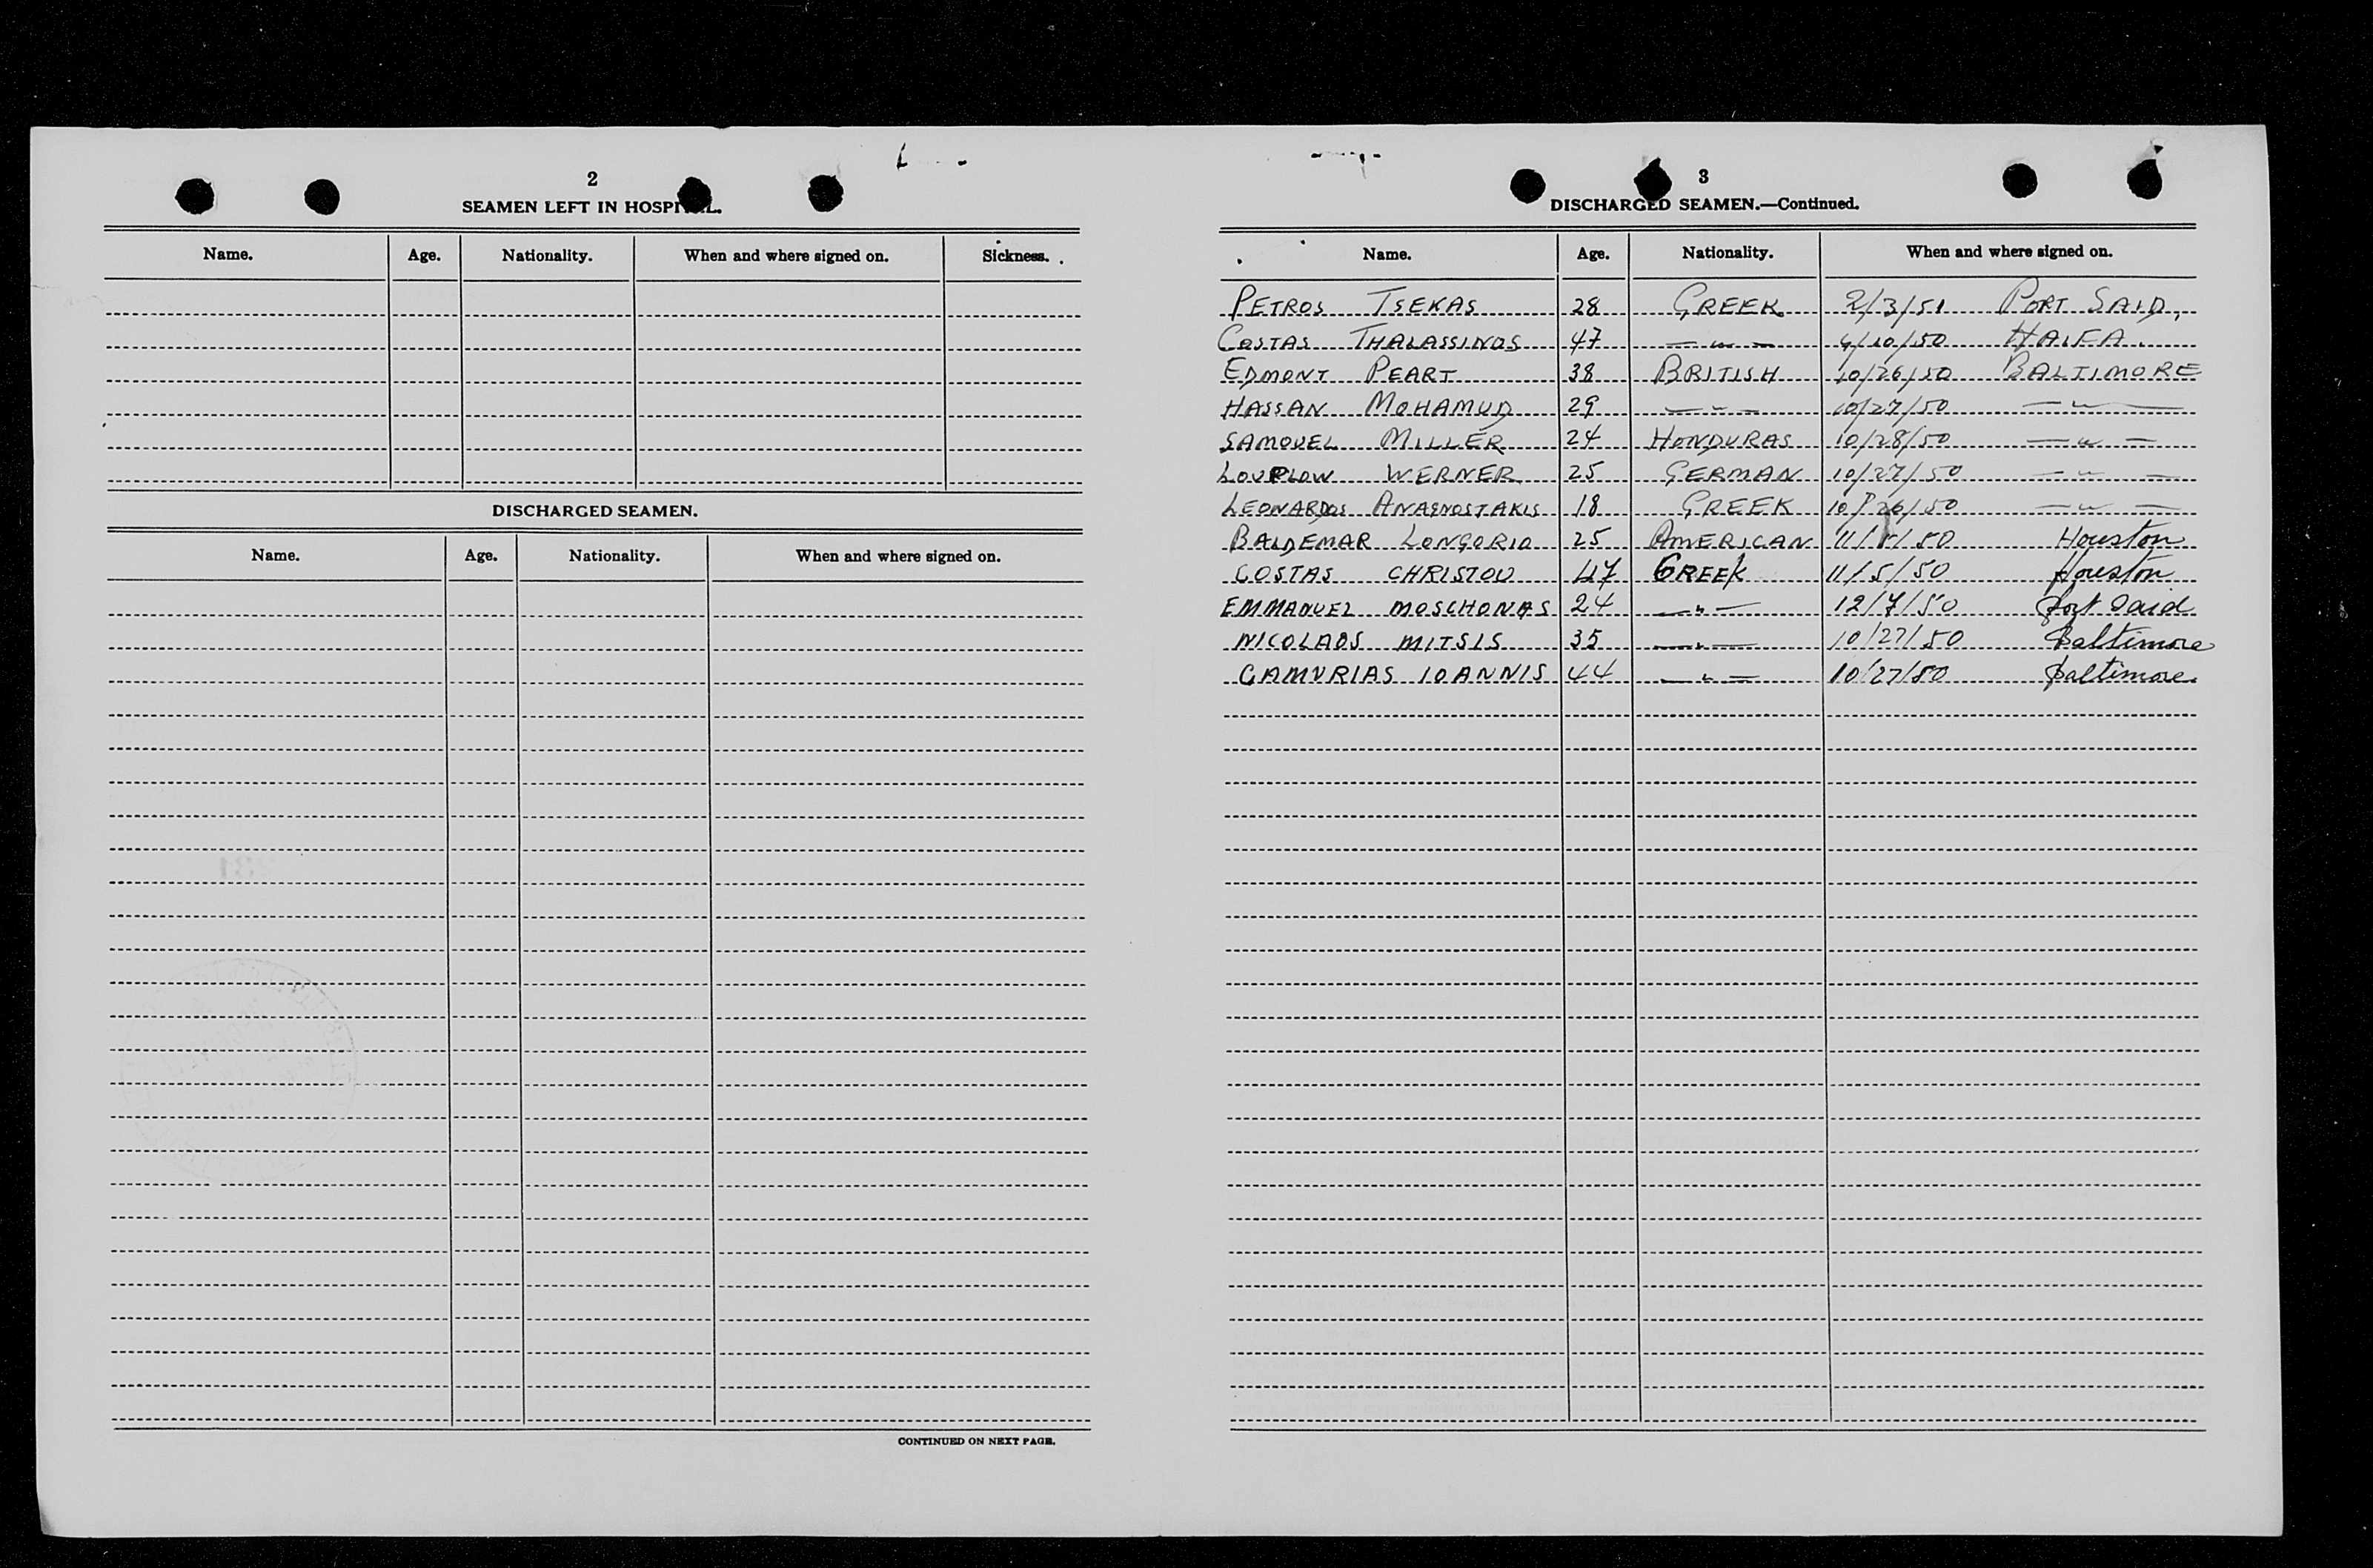 2
SEAMEN LEFT IN HOSPITAL.
Name. Age. Nationality. When and where signed on. Sickness.
DISCHARGED SEAMEN.
Name. Age. Nationality. When and where signed on.
CONTINUED ON NEXT PAGE.
3
DISCHARGED SEAMEN.—Continued.
Name. Age. Nationality. When and where signed on.
PETROS TSEKAS 28 GREEK 2/3/51 PORT SAID,
COSTAS THALASSINOS 47 — " — 9/10/50 HAIFA.
EDMONT PEART 38 BRITISH 10/26/50 BALTIMORE
HASSAN MOHAMUD 29 — " — 10/27/50 — " —
SAMOUEL MILLER 24 HONDURAS 10/28/50 — " —
WERNER 25 GERMAN 10/27/50 — " —
LEONARDOS ANAGNOSTAKIS 18 GREEK 10/26/50 — " —
BALDEMAR LONGORIA 25 AMERICAN Houston
COSTAS CHRISTOU 47 GREEK 11/5/50 Houston
EMMANUEL MOSCHONAS 24 — " — 12/7/50 Port Said
NICOLAOS MITSIS 35 — " — 10/27/50 Baltimore
GAMVRIAS IOANNIS 44 — " — 10/27/50 Baltimore.